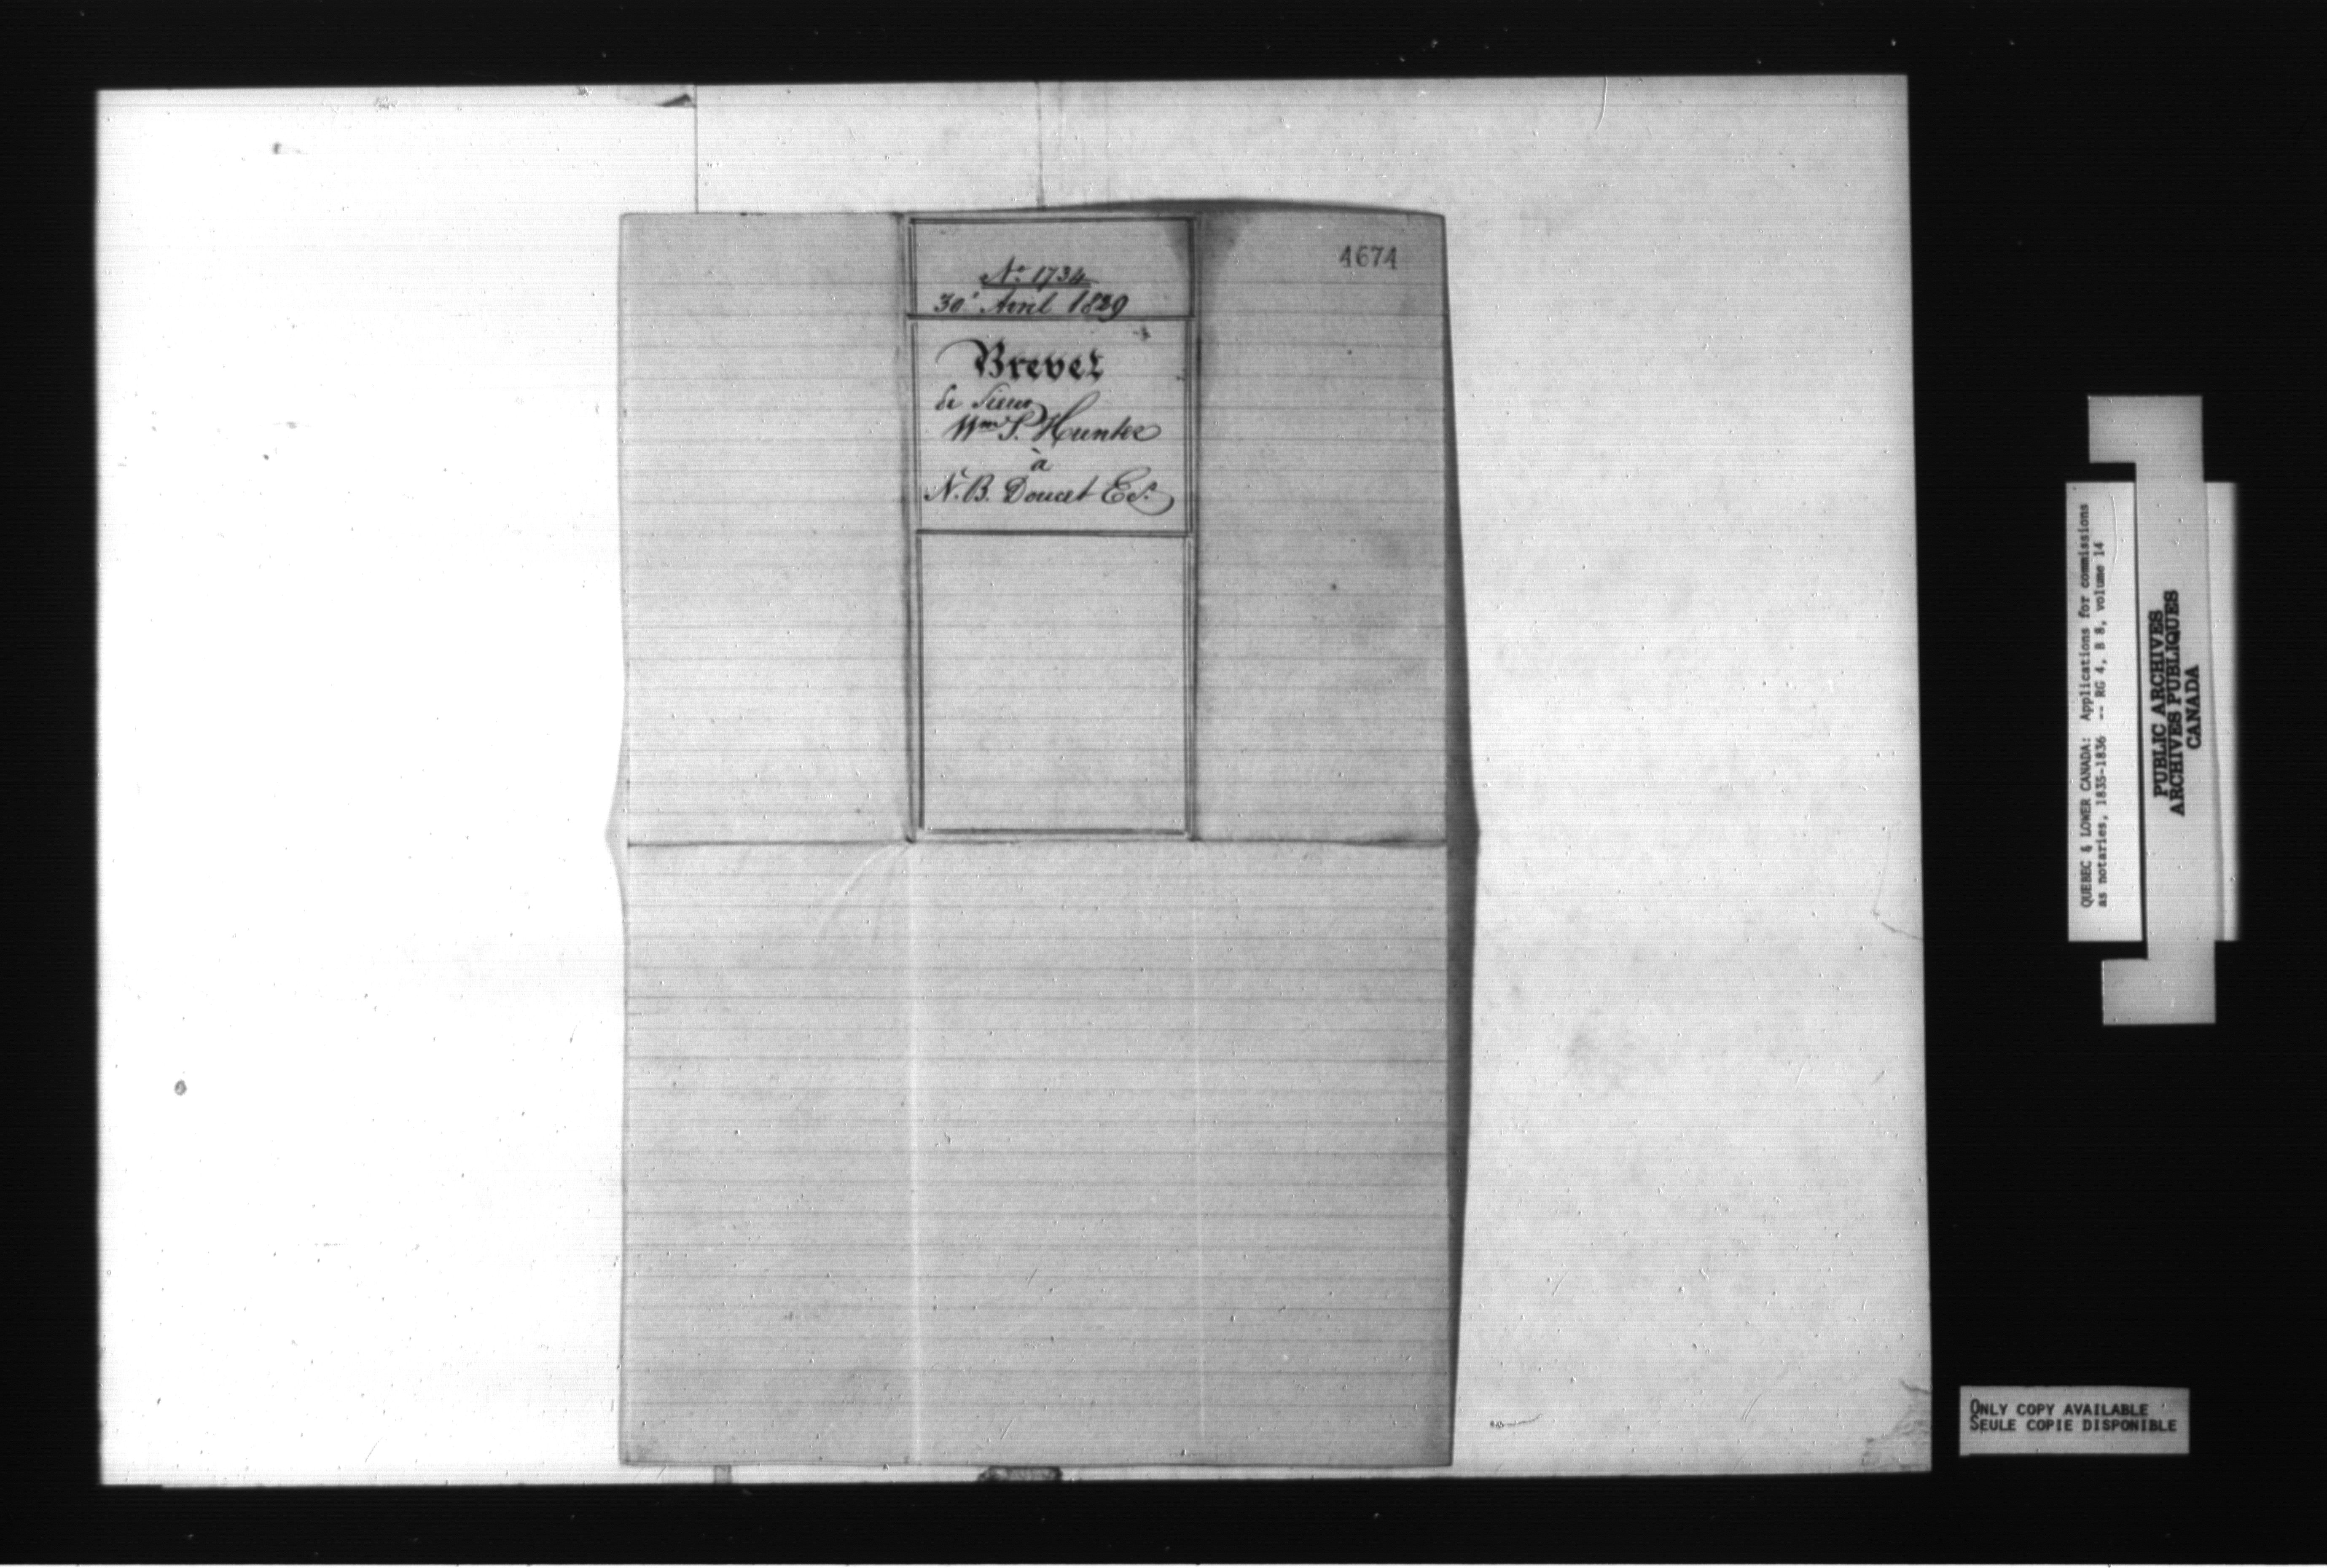 4674
No. 1734
30 Avril 1829
Brevet
de Sieur
Wm S. Hunter
à
N. B. Doucet
QUEBEC & LOWER CANADA: Applications for commissions
as notaries, 1835-1836 -- RG 4, B 8, volume 14
PUBLIC ARCHIVES
ARCHIVES PUBLIQUES
CANADA
ONLY COPY AVAILABLE
SEULE COPIE DISPONIBLE